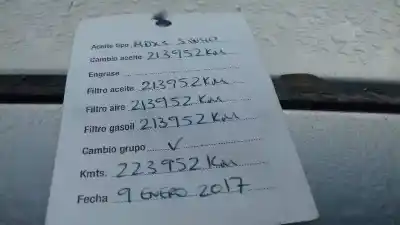 Aceite tipo
Cambio aceite 213952 KM
Engrase
Filtro aceite 213952 KM
Filtro aire 213952 KM
Filtro gasoil 213952 KM
Cambio grupo V
Kmts. 223952 KM
Fecha 9 ENERO 2017